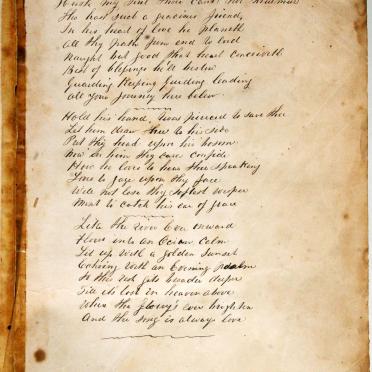 Hush my soul thou canst not murmur
Tho hast such a gracious friend,
In his heart of love he planeth
All thy path from end to end
Naught but good that heart conceiveth
Best of blessings he'll bestow
Guarding Keeping guiding leading
All your journey here below
Hold his hand, 'twas pierced to save thee
Let him draw thee to his side
Put thy head upon his bosom
Now in him thy care confide
How he loves to hear thee speaking
Love to gaze upon thy face
Will not lose thy softest wisper
Must to catch his ear of grace
Like the river Ever onward
Flows into an Ocean Calm
Lit up with a golden Sunset
Echoing with an Evening psalm
So the rest gets broader deeper
Till its lost in heaven above
When the glory's ever brighten
And the song is always love